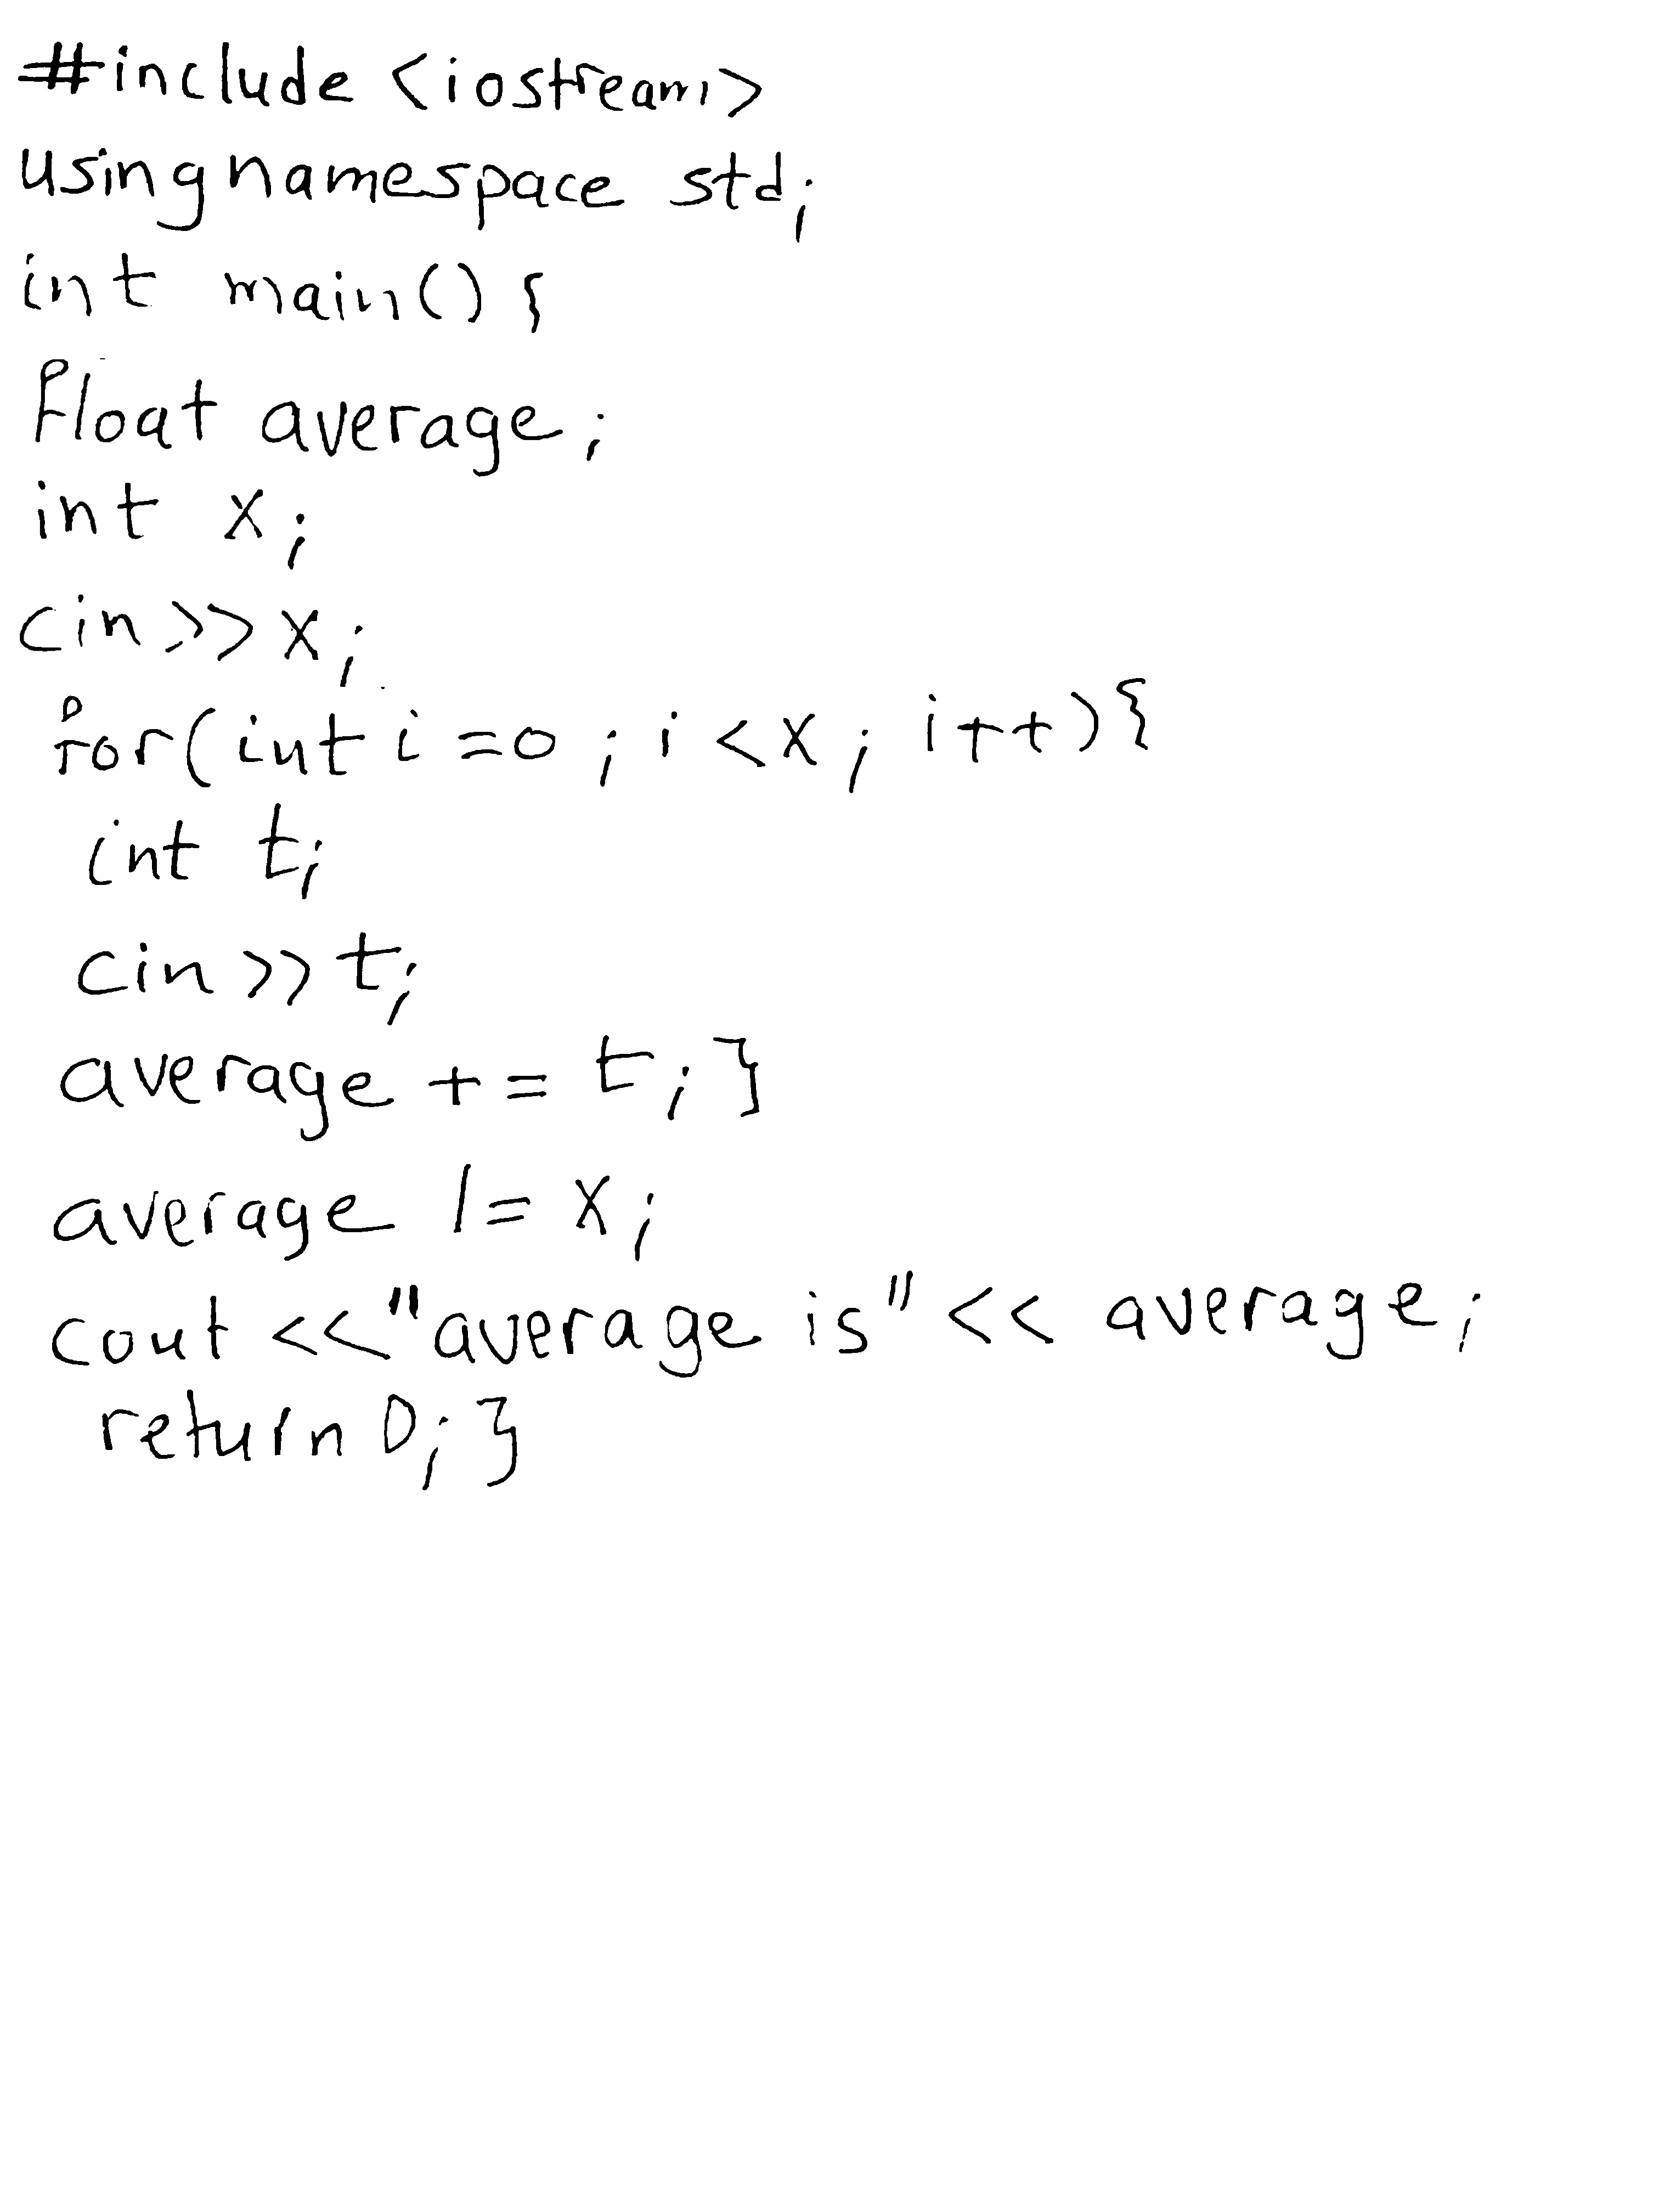 #include <iostream>
using namespace std;
int main() {
float average;
int x;
cin>>x;
for(int i=0; i<x; i++){
int t;
cin>>t;
average += t; }
average /= x;
cout <<"average is" << average;
return 0; }